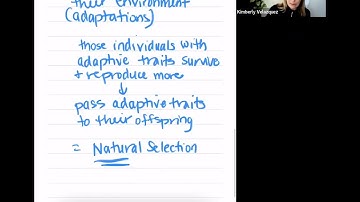 their environment
(adaptations)
those individuals with
adaptive traits survive
+ reproduce more
↓
pass adaptive traits
to their offspring
= Natural Selection
Kimberly Velazquez